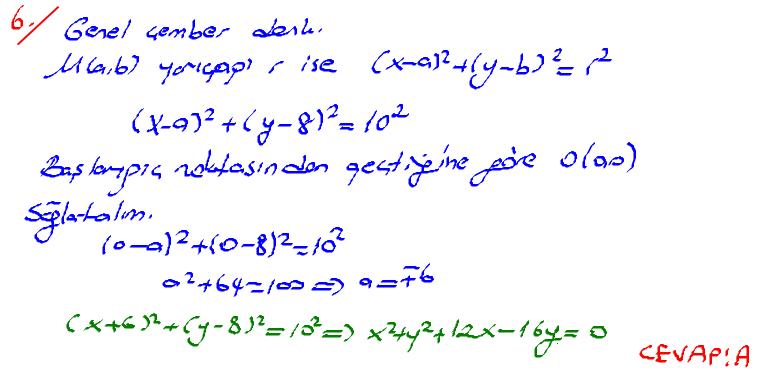 6./ Genel çember denk.
M(a,b) yarıçapı r ise (x-a)²+(y-b)²=r²
(x-a)²+(y-8)²=10²
Başlangıç noktasından geçtiğine göre O(0,0)
Sağlatalım.
(0-a)²+(0-8)²=10²
a²+64=100 => a=∓6
(x+6)²+(y-8)²=10² => x²+y²+12x-16y=0
CEVAP:A